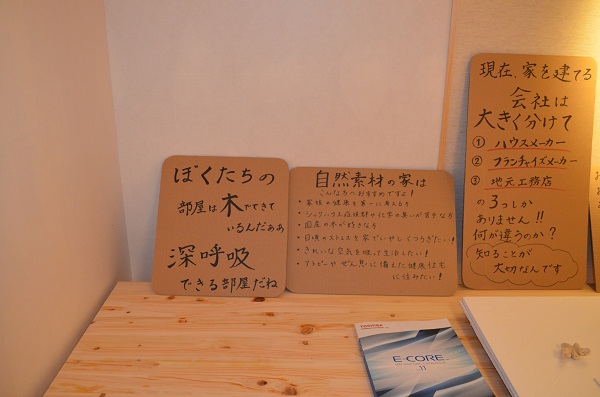 ぼくたちの
部屋は木でできて
いるんだぁぁ
深呼吸
できる部屋だね
自然素材の家は
こんな方へおすすめですよ！
・家族の健康を第一に考える方
・シックハウス症候群や化学の臭いが苦手な方
・国産の木が好きな方
・日頃のストレスを家でいやしてつうぎたい！
・きれいな空気を吸って生活したい！
・アトピーやぜん息に備えた健康住宅
に住みたい！
現在、家を建てる
会社は
大きく分けて
① ハウスメーカー
② フランチャイズメーカー
③ 地元工務店
の3つしか
ありません!!
何が違うのか？
知ることが
大切なんです
E-CORE